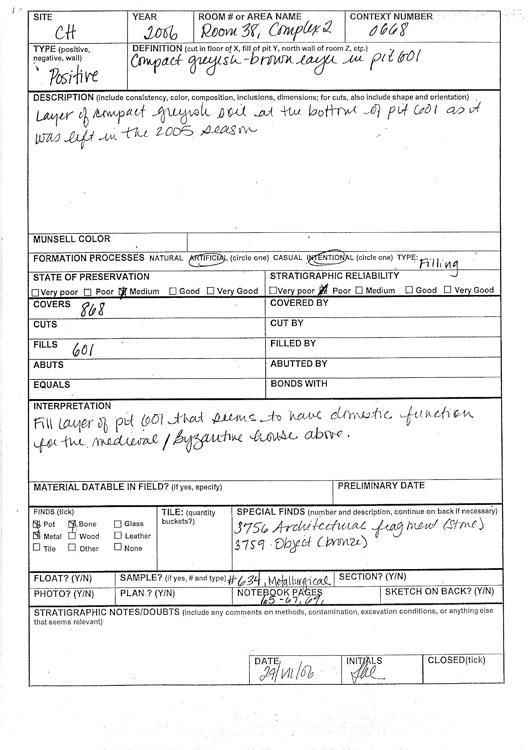 SITE YEAR ROOM # or AREA NAME CONTEXT NUMBER
CH 2006 Room 38, Complex 2 0668
TYPE (positive, negative, wall) DEFINITION (cut in floor of X, fill of pit Y, north wall of room Z, etc.)
Positive Compact greyish-brown layer in pit 601
DESCRIPTION (include consistency, color, composition, inclusions, dimensions; for cuts, also include shape and orientation)
Layer of compact greyish soil at the bottom of pit 601 as it
was left in the 2005 season
MUNSELL COLOR
FORMATION PROCESSES NATURAL ARTIFICIAL (circle one) CASUAL INTENTIONAL (circle one) TYPE: Filling
STATE OF PRESERVATION STRATIGRAPHIC RELIABILITY
Very poor Poor Medium Good Very Good Very poor Poor Medium Good Very Good
COVERS 868 COVERED BY
CUTS CUT BY
FILLS 601 FILLED BY
ABUTS ABUTTED BY
EQUALS BONDS WITH
INTERPRETATION
Fill layer of pit 601 that seems to have domestic function
for the medieval / Byzantine house above.
MATERIAL DATABLE IN FIELD? (if yes, specify) PRELIMINARY DATE
FINDS (tick) TILE: (quantity buckets?) SPECIAL FINDS (number and description, continue on back if necessary)
Pot Bone Glass 3756 Architectural fragment (stone)
Metal Wood Leather 3759 Object (bronze)
Tile Other None
FLOAT? (Y/N) SAMPLE? (if yes, # and type) #634, Metallurgical SECTION? (Y/N)
PHOTO? (Y/N) PLAN ? (Y/N) NOTEBOOK PAGES 65-67, 69, SKETCH ON BACK? (Y/N)
STRATIGRAPHIC NOTES/DOUBTS (include any comments on methods, contamination, excavation conditions, or anything else
that seems relevant)
DATE INITIALS CLOSED(tick)
29/VII/06